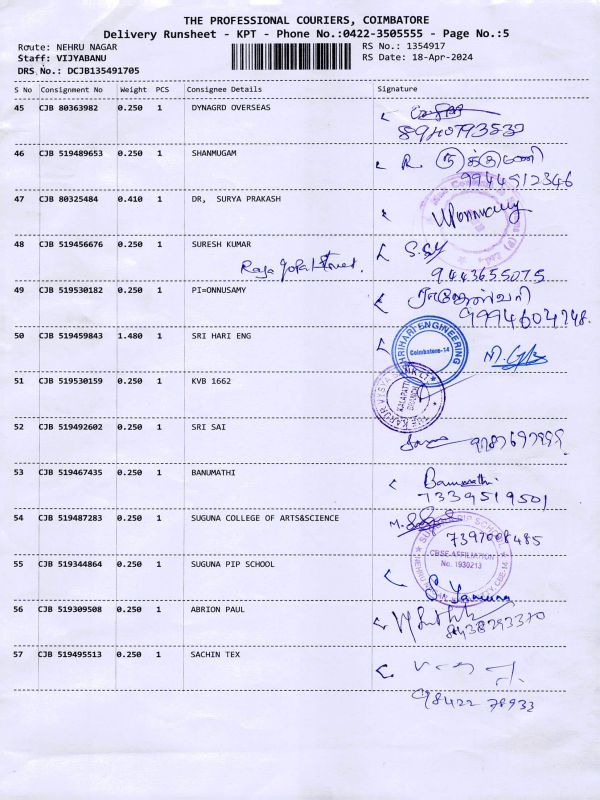 THE PROFESSIONAL COURIERS, COIMBATORE
Delivery Runsheet - KPT - Phone No.:0422-3505555 - Page No.:5
Route: NEHRU NAGAR
RS No.: 1354917
Staff: VIJYABANU
RS Date: 18-Apr-2024
DRS No.: DCJB135491705
S No Consignment No Weight PCS Consignee Details Signature
45 CJB 80363982 0.250 1 DYNAGRD OVERSEAS
46 CJB 519489653 0.250 1 SHANMUGAM
R.
9944512346
47 CJB 80325484 0.410 1 DR, SURYA PRAKASH
48 CJB 519456676 0.250 1 SURESH KUMAR
9443655075
49 CJB 519530182 0.250 1 PI=ONNUSAMY
9994604748.
50 CJB 519459843 1.480 1 SRI HARI ENG
SHRIHARI ENGINEERING
Coimbatore-14
51 CJB 519530159 0.250 1 KVB 1662
KALAPATTI
BRANCH
52 CJB 519492602 0.250 1 SRI SAI
53 CJB 519467435 0.250 1 BANUMATHI
Banumathi
7339519501
54 CJB 519487283 0.250 1 SUGUNA COLLEGE OF ARTS&SCIENCE
7397008485
SUGUNA PIP SCHOOL
CBSE AFFILIATION
No. 1930213
55 CJB 519344864 0.250 1 SUGUNA PIP SCHOOL
S. Yamuna
56 CJB 519309508 0.250 1 ABRION PAUL
8438293370
57 CJB 519495513 0.250 1 SACHIN TEX
98422 78933